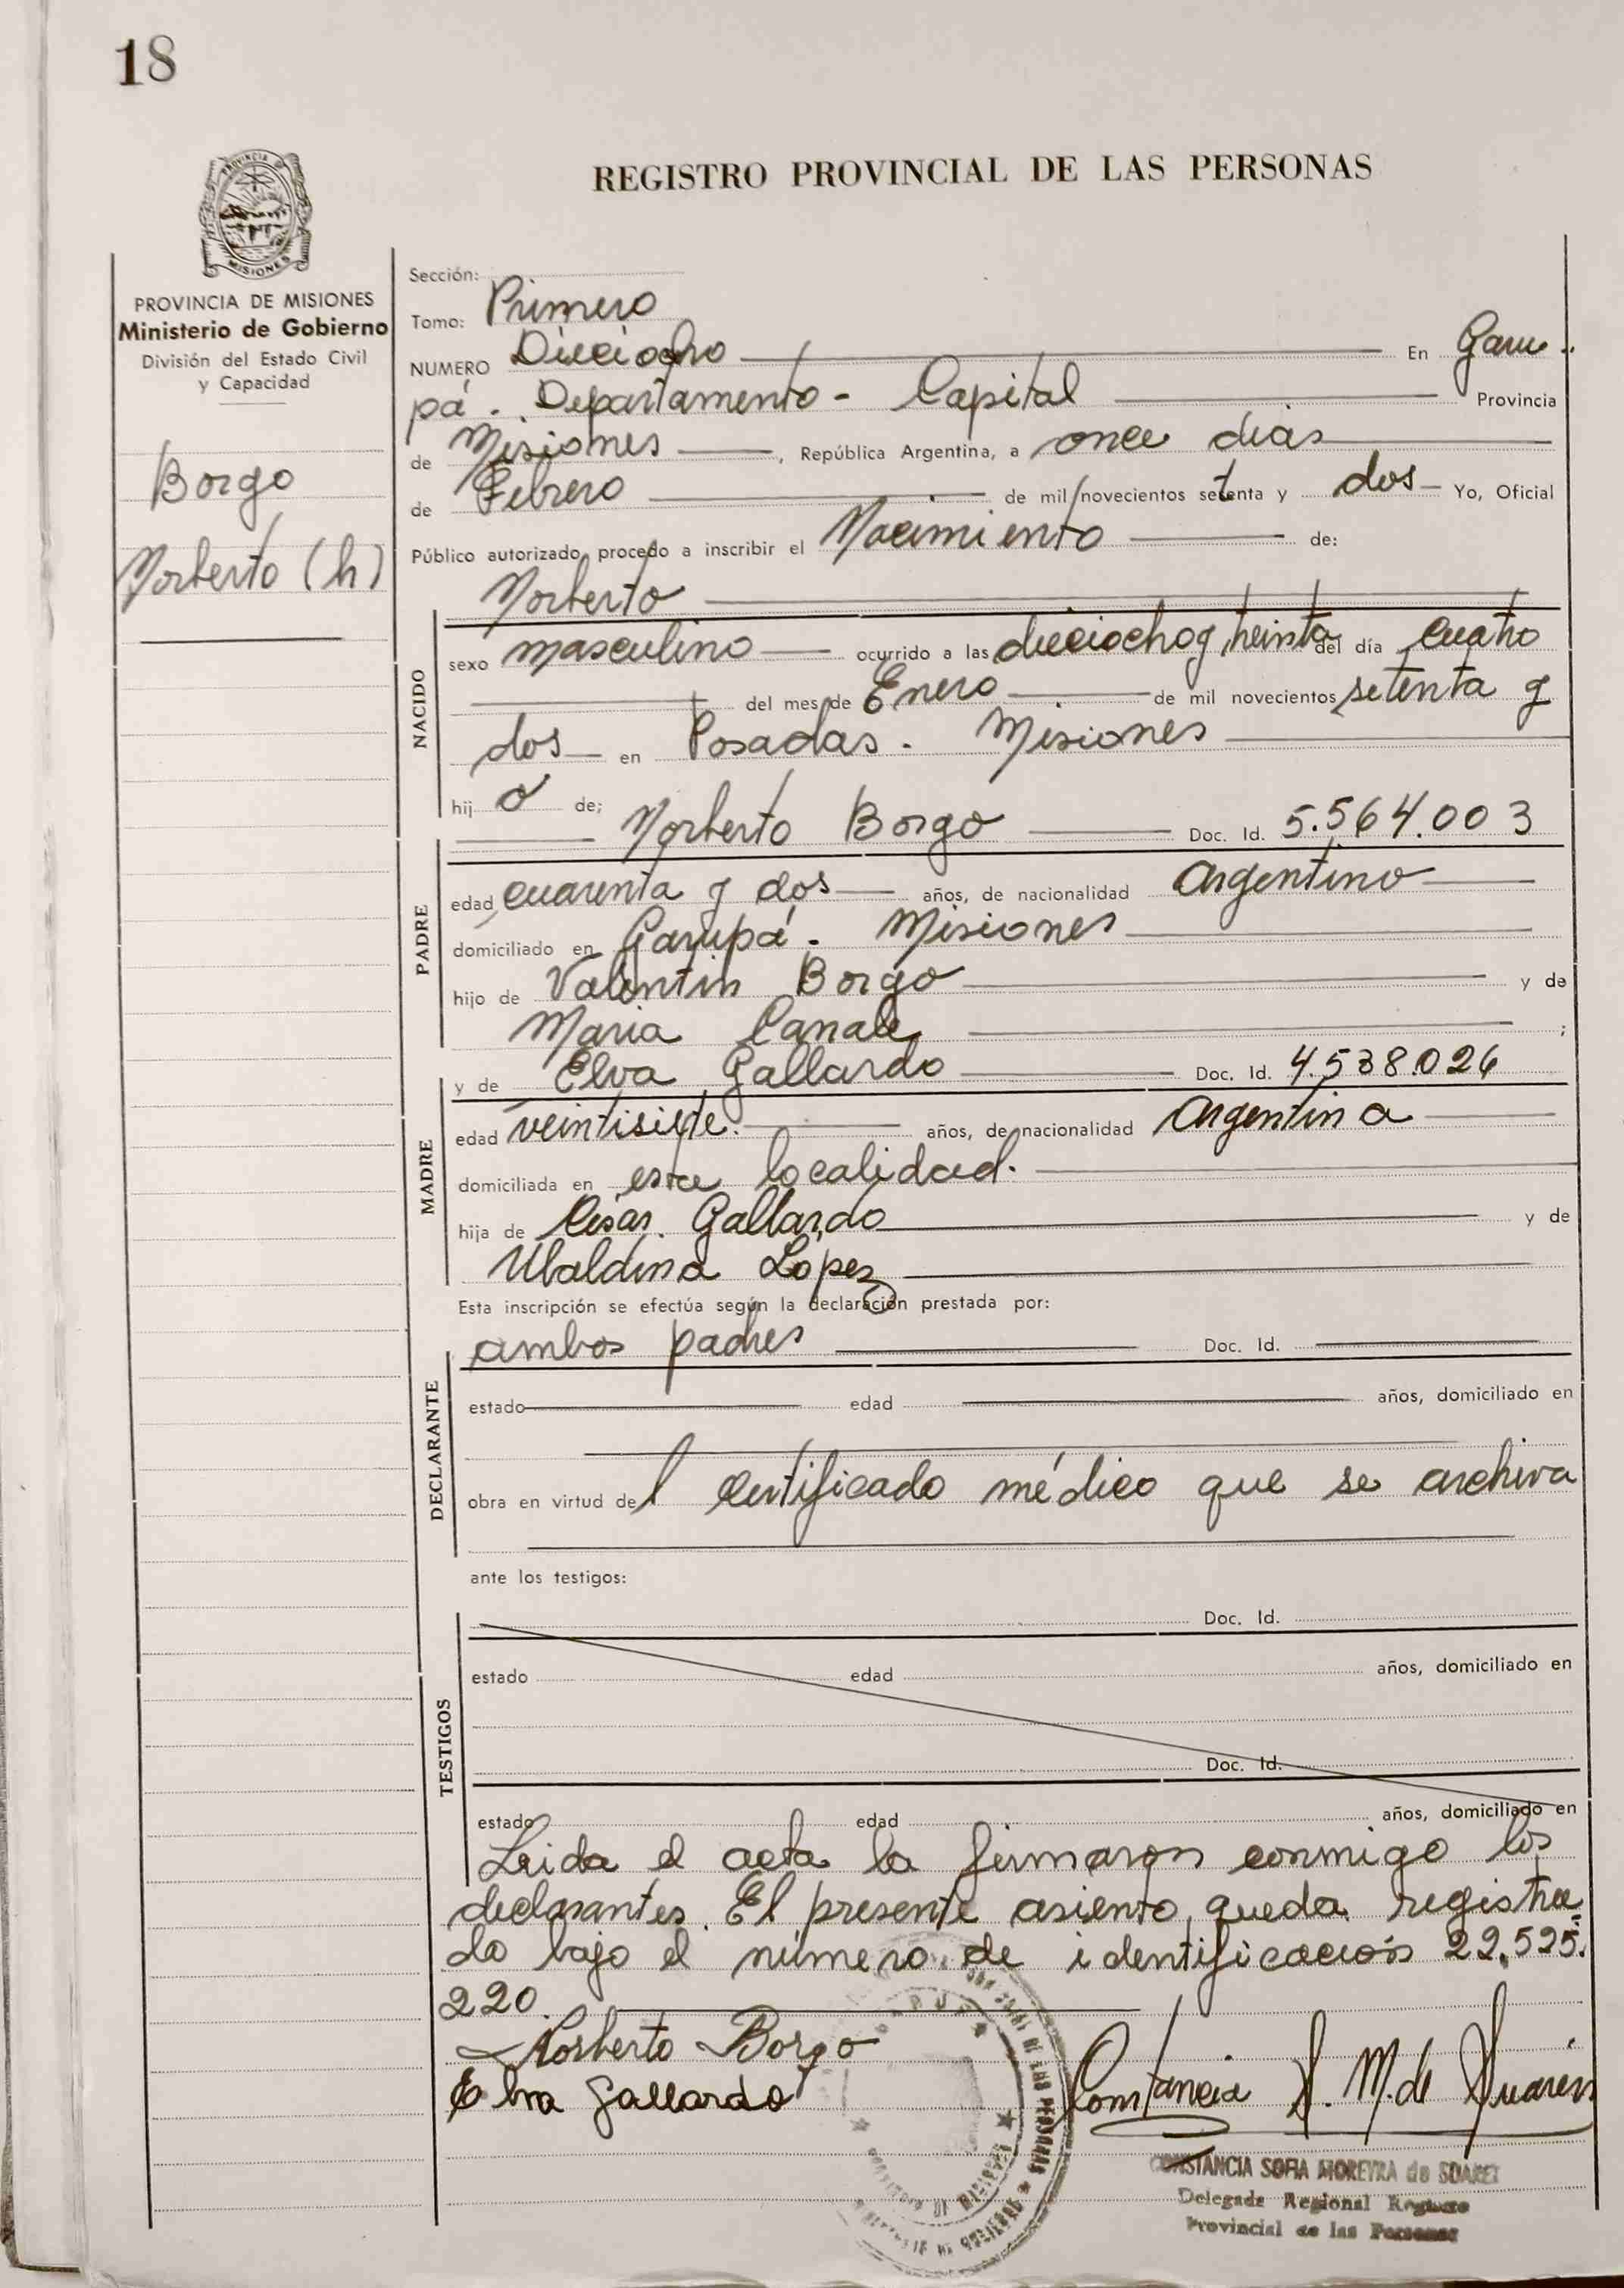 18
REGISTRO PROVINCIAL DE LAS PERSONAS
PROVINCIA
MISIONES
PROVINCIA DE MISIONES
Ministerio de Gobierno
División del Estado Civil
y Capacidad
Borgo
Norberto (h)
Sección:
Tomo: Primero
NUMERO Dieciocho En Garu-
pá. Departamento - Capital Provincia
de Misiones, República Argentina, a once dias
de Febrero de mil novecientos setenta y dos Yo, Oficial
Público autorizado, procedo a inscribir el Nacimiento de:
Norberto
NACIDO
sexo masculino ocurrido a las dieciocho y treinta del día cuatro
del mes de Enero de mil novecientos setenta y
dos en Posadas. Misiones
hij o de;
Norberto Borgo Doc. Id. 5.564.003
PADRE
edad cuarenta y dos años, de nacionalidad Argentino
domiciliado en Garupá. Misiones
hijo de Valentin Borgo y de
Maria Canale ;
y de Elva Gallardo Doc. Id. 4.538.026
MADRE
edad veintisiete. años, de nacionalidad Argentina
domiciliada en esta localidad.
hija de César Gallardo y de
Ubaldina López
Esta inscripción se efectúa según la declaración prestada por:
ambos padres Doc. Id.
DECLARANTE
estado edad años, domiciliado en
obra en virtud del certificado médico que se archiva
ante los testigos:
Doc. Id.
TESTIGOS
estado edad años, domiciliado en
Doc. Id.
estado edad años, domiciliado en
Leida el acta la firmaron conmigo los
declarantes. El presente asiento queda registra
do bajo el número de identificación 22.525.
220.
Norberto Borgo
Elva Gallardo
Constancia S. M. de Suárez
CONSTANCIA SOFIA MOREYRA de SUAREZ
Delegada Regional Registro
Provincial de las Personas
DE LAS PERSONAS